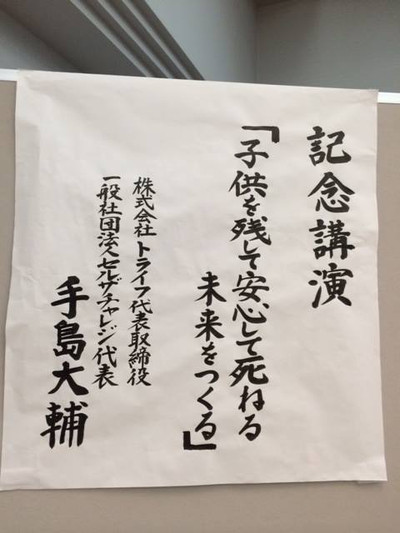 記念講演
「子供を残して安心して死ねる
未来をつくる」
株式会社トライフ代表取締役
一般社団法人セルザチャレンジ代表
手島大輔